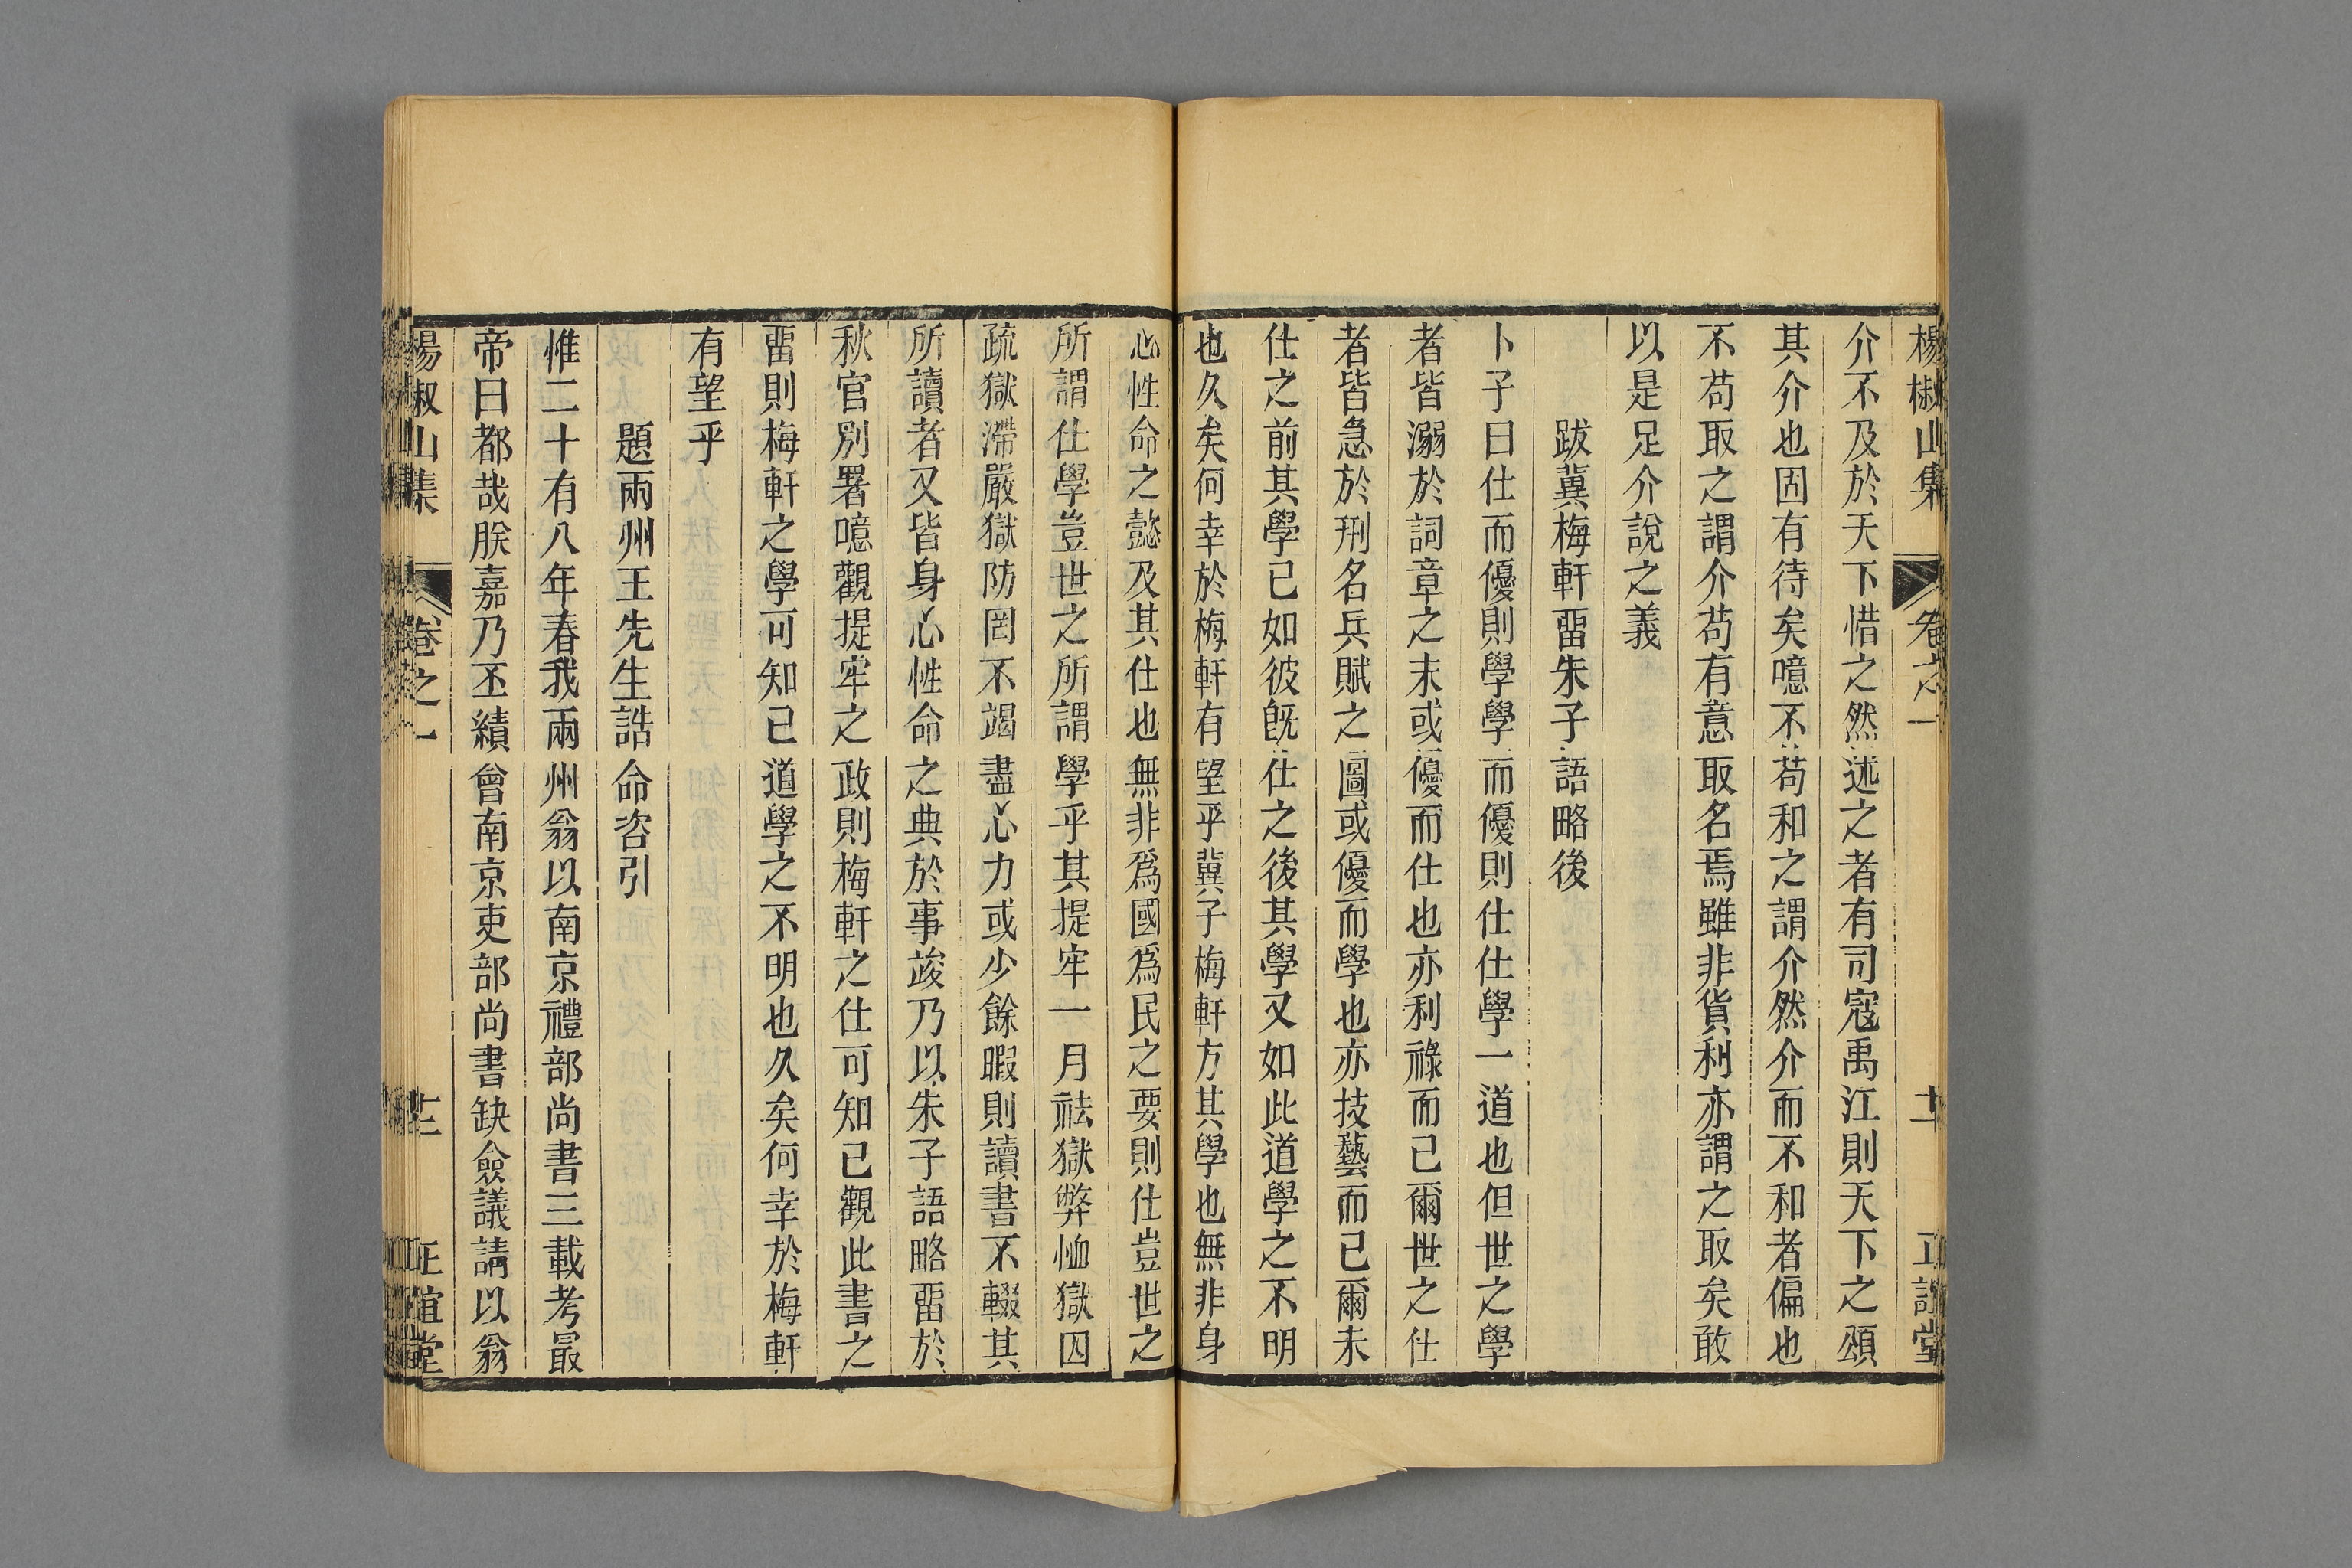 楊椒山集 卷之一 十一 正誼堂
介不及於天下惜之然述之者有司寇禹江則天下之頌
其介也固有待矣噫不苟和之謂介然介而不和者偏也
不苟取之謂介苟有意取名焉雖非貨利亦謂之取矣敢
以是足介說之義
跋冀梅軒畱朱子語略後
卜子曰仕而優則學學而優則仕仕學一道也但世之學
者皆溺於詞章之末或優而仕也亦利祿而已爾世之仕
者皆急於刑名兵賦之圖或優而學也亦技藝而已爾未
仕之前其學已如彼旣仕之後其學又如此道學之不明
也久矣何幸於梅軒有望乎冀子梅軒方其學也無非身
心性命之懿及其仕也無非爲國爲民之要則仕豈世之
所謂仕學豈世之所謂學乎其提牢一月祛獄弊恤獄囚
疏獄滯嚴獄防罔不竭盡心力或少餘暇則讀書不輟其
所讀者又皆身心性命之典於事竣乃以朱子語略畱於
秋官別署噫觀提牢之政則梅軒之仕可知已觀此書之
畱則梅軒之學可知已道學之不明也久矣何幸於梅軒
有望乎
題兩州王先生誥命咨引
惟二十有八年春我兩州翁以南京禮部尚書三載考最
帝曰都哉朕嘉乃丕績曾南京吏部尚書缺僉議請以翁
楊椒山集 卷之一 十二 正誼堂